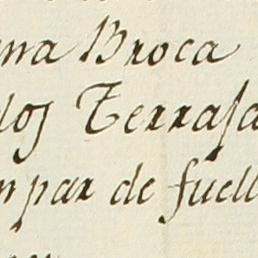 una Broca
los Terrasa
n par de fuell